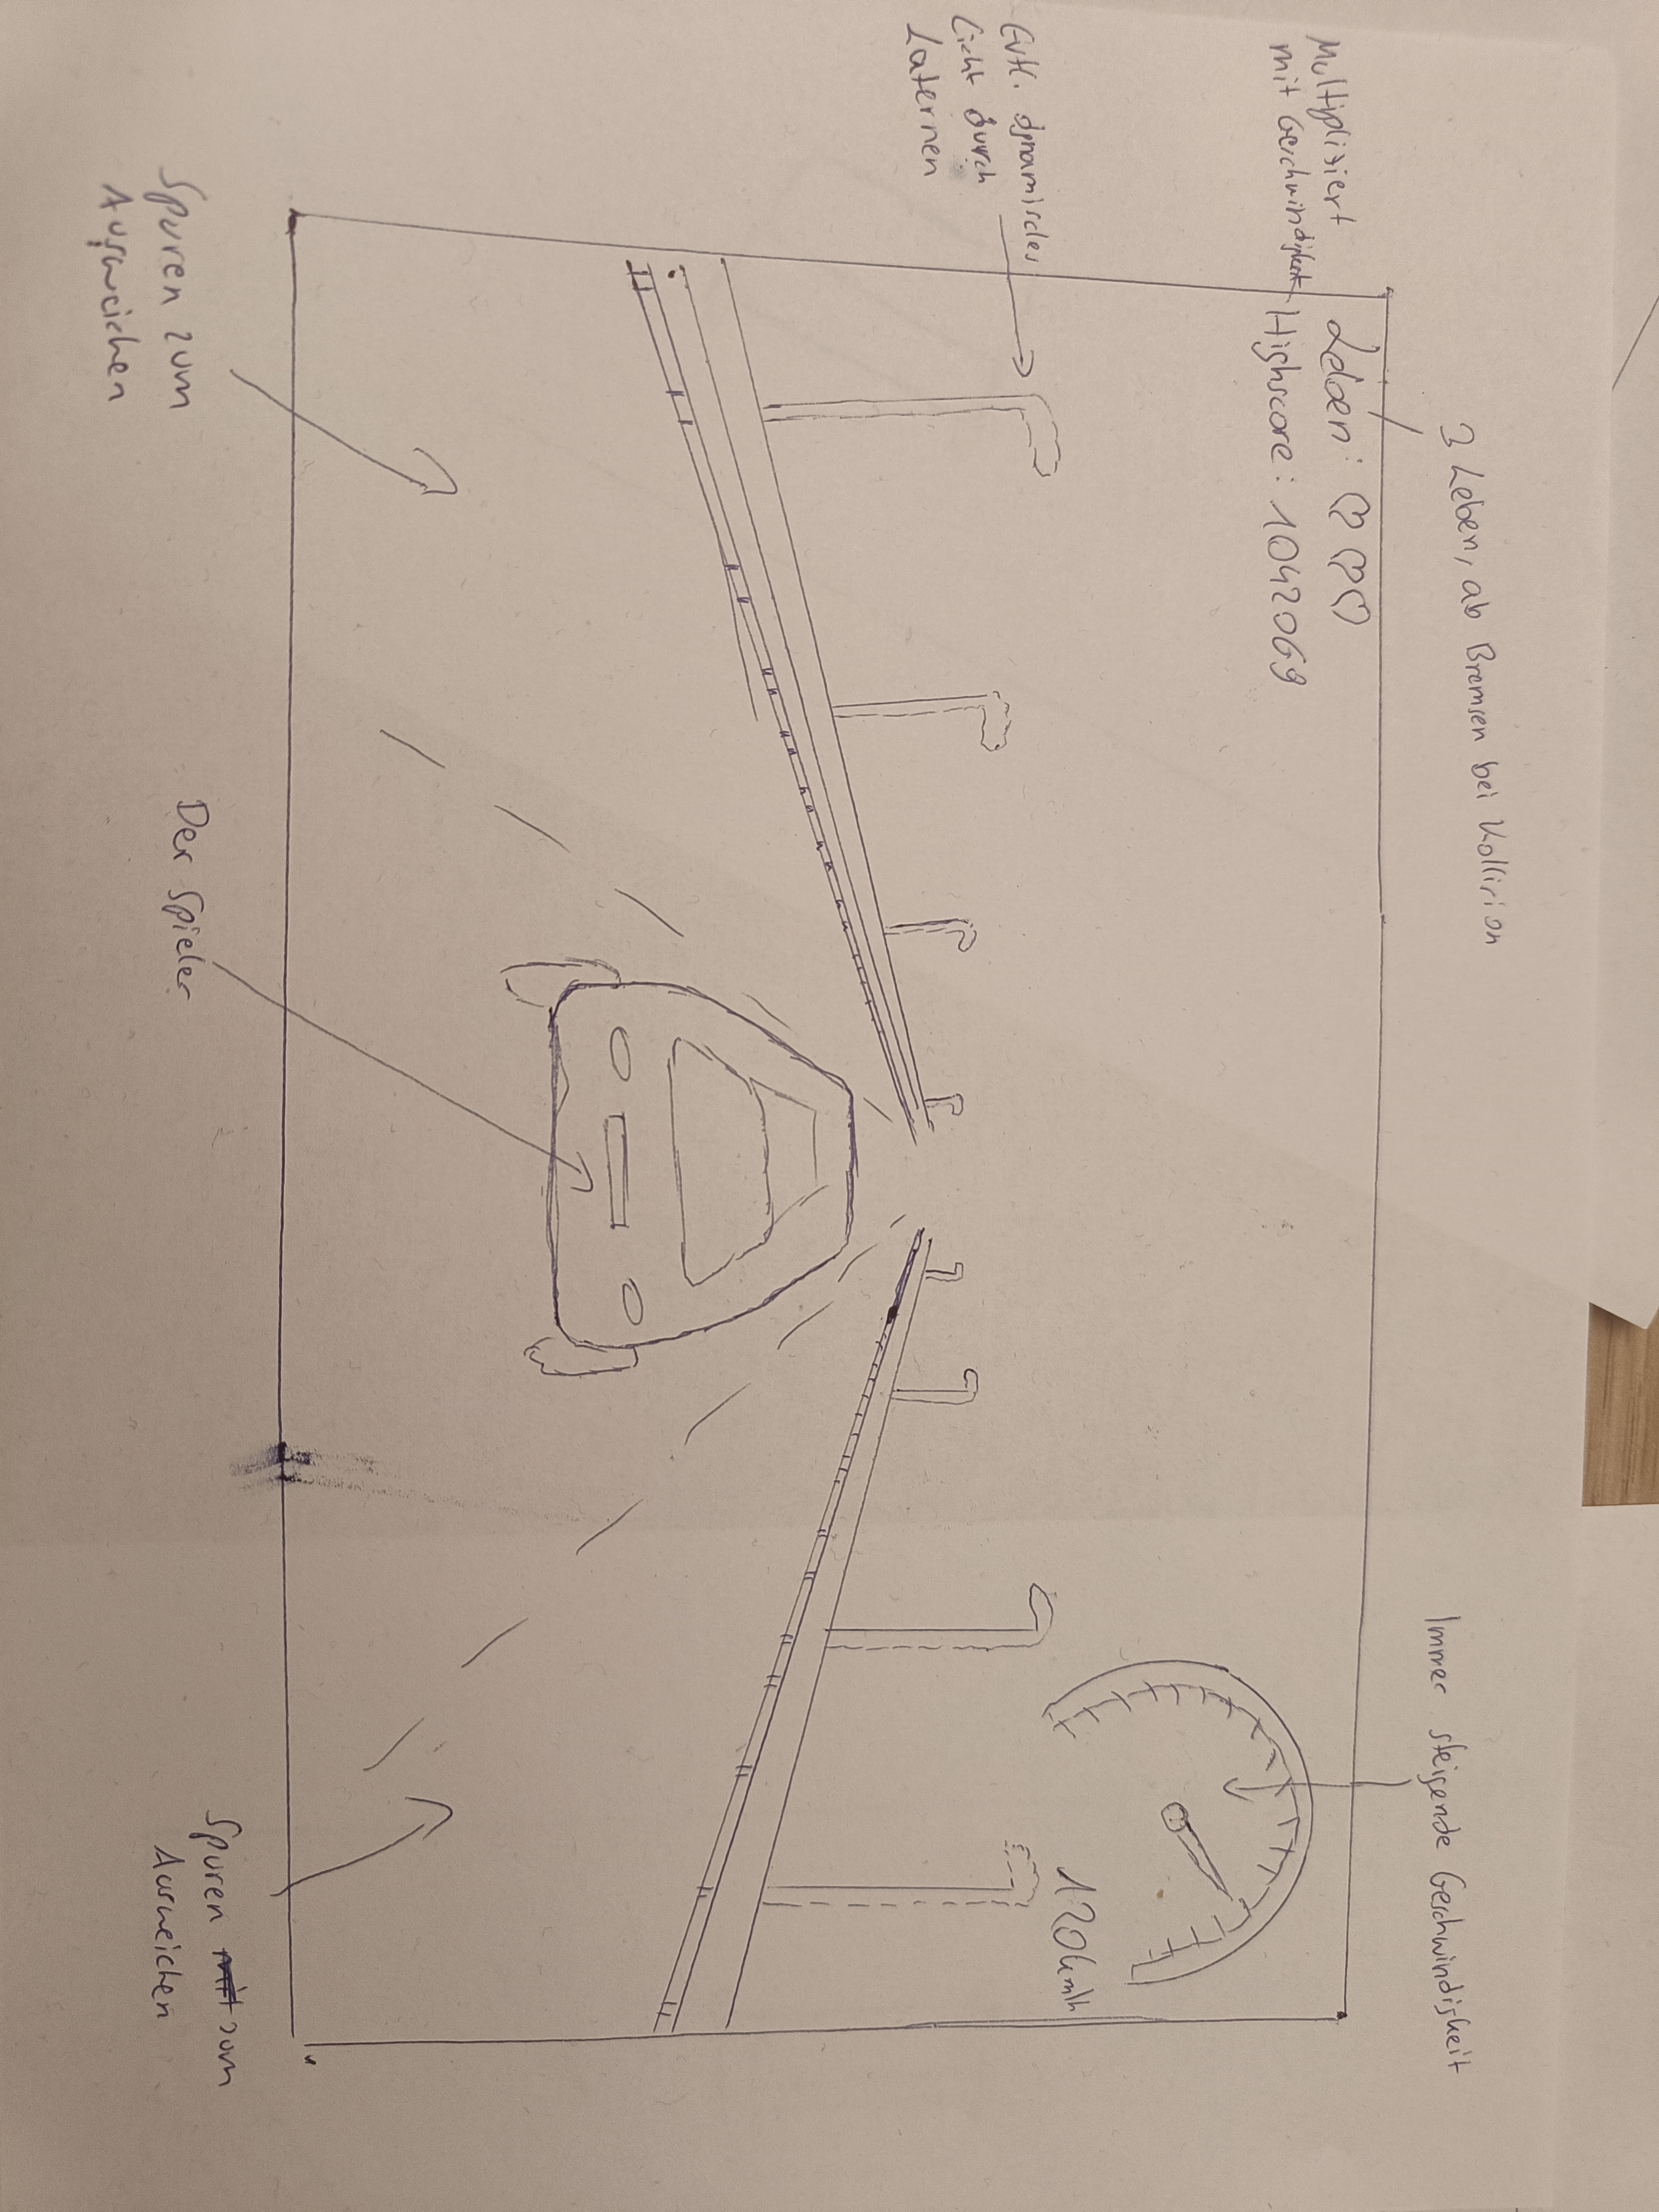 3 Leben, ab Bremsen bei Kollision
Immer steigende Geschwindigkeit
Multipliziert
mit Geschwindigkeit
Leben: ♡ ♡ ♡
Highscore: 1042069
120 km/h
Evtl. dynamisches
Licht durch
Laternen
Spuren zum
Ausweichen
Der Spieler
Spuren mit zum
Ausweichen